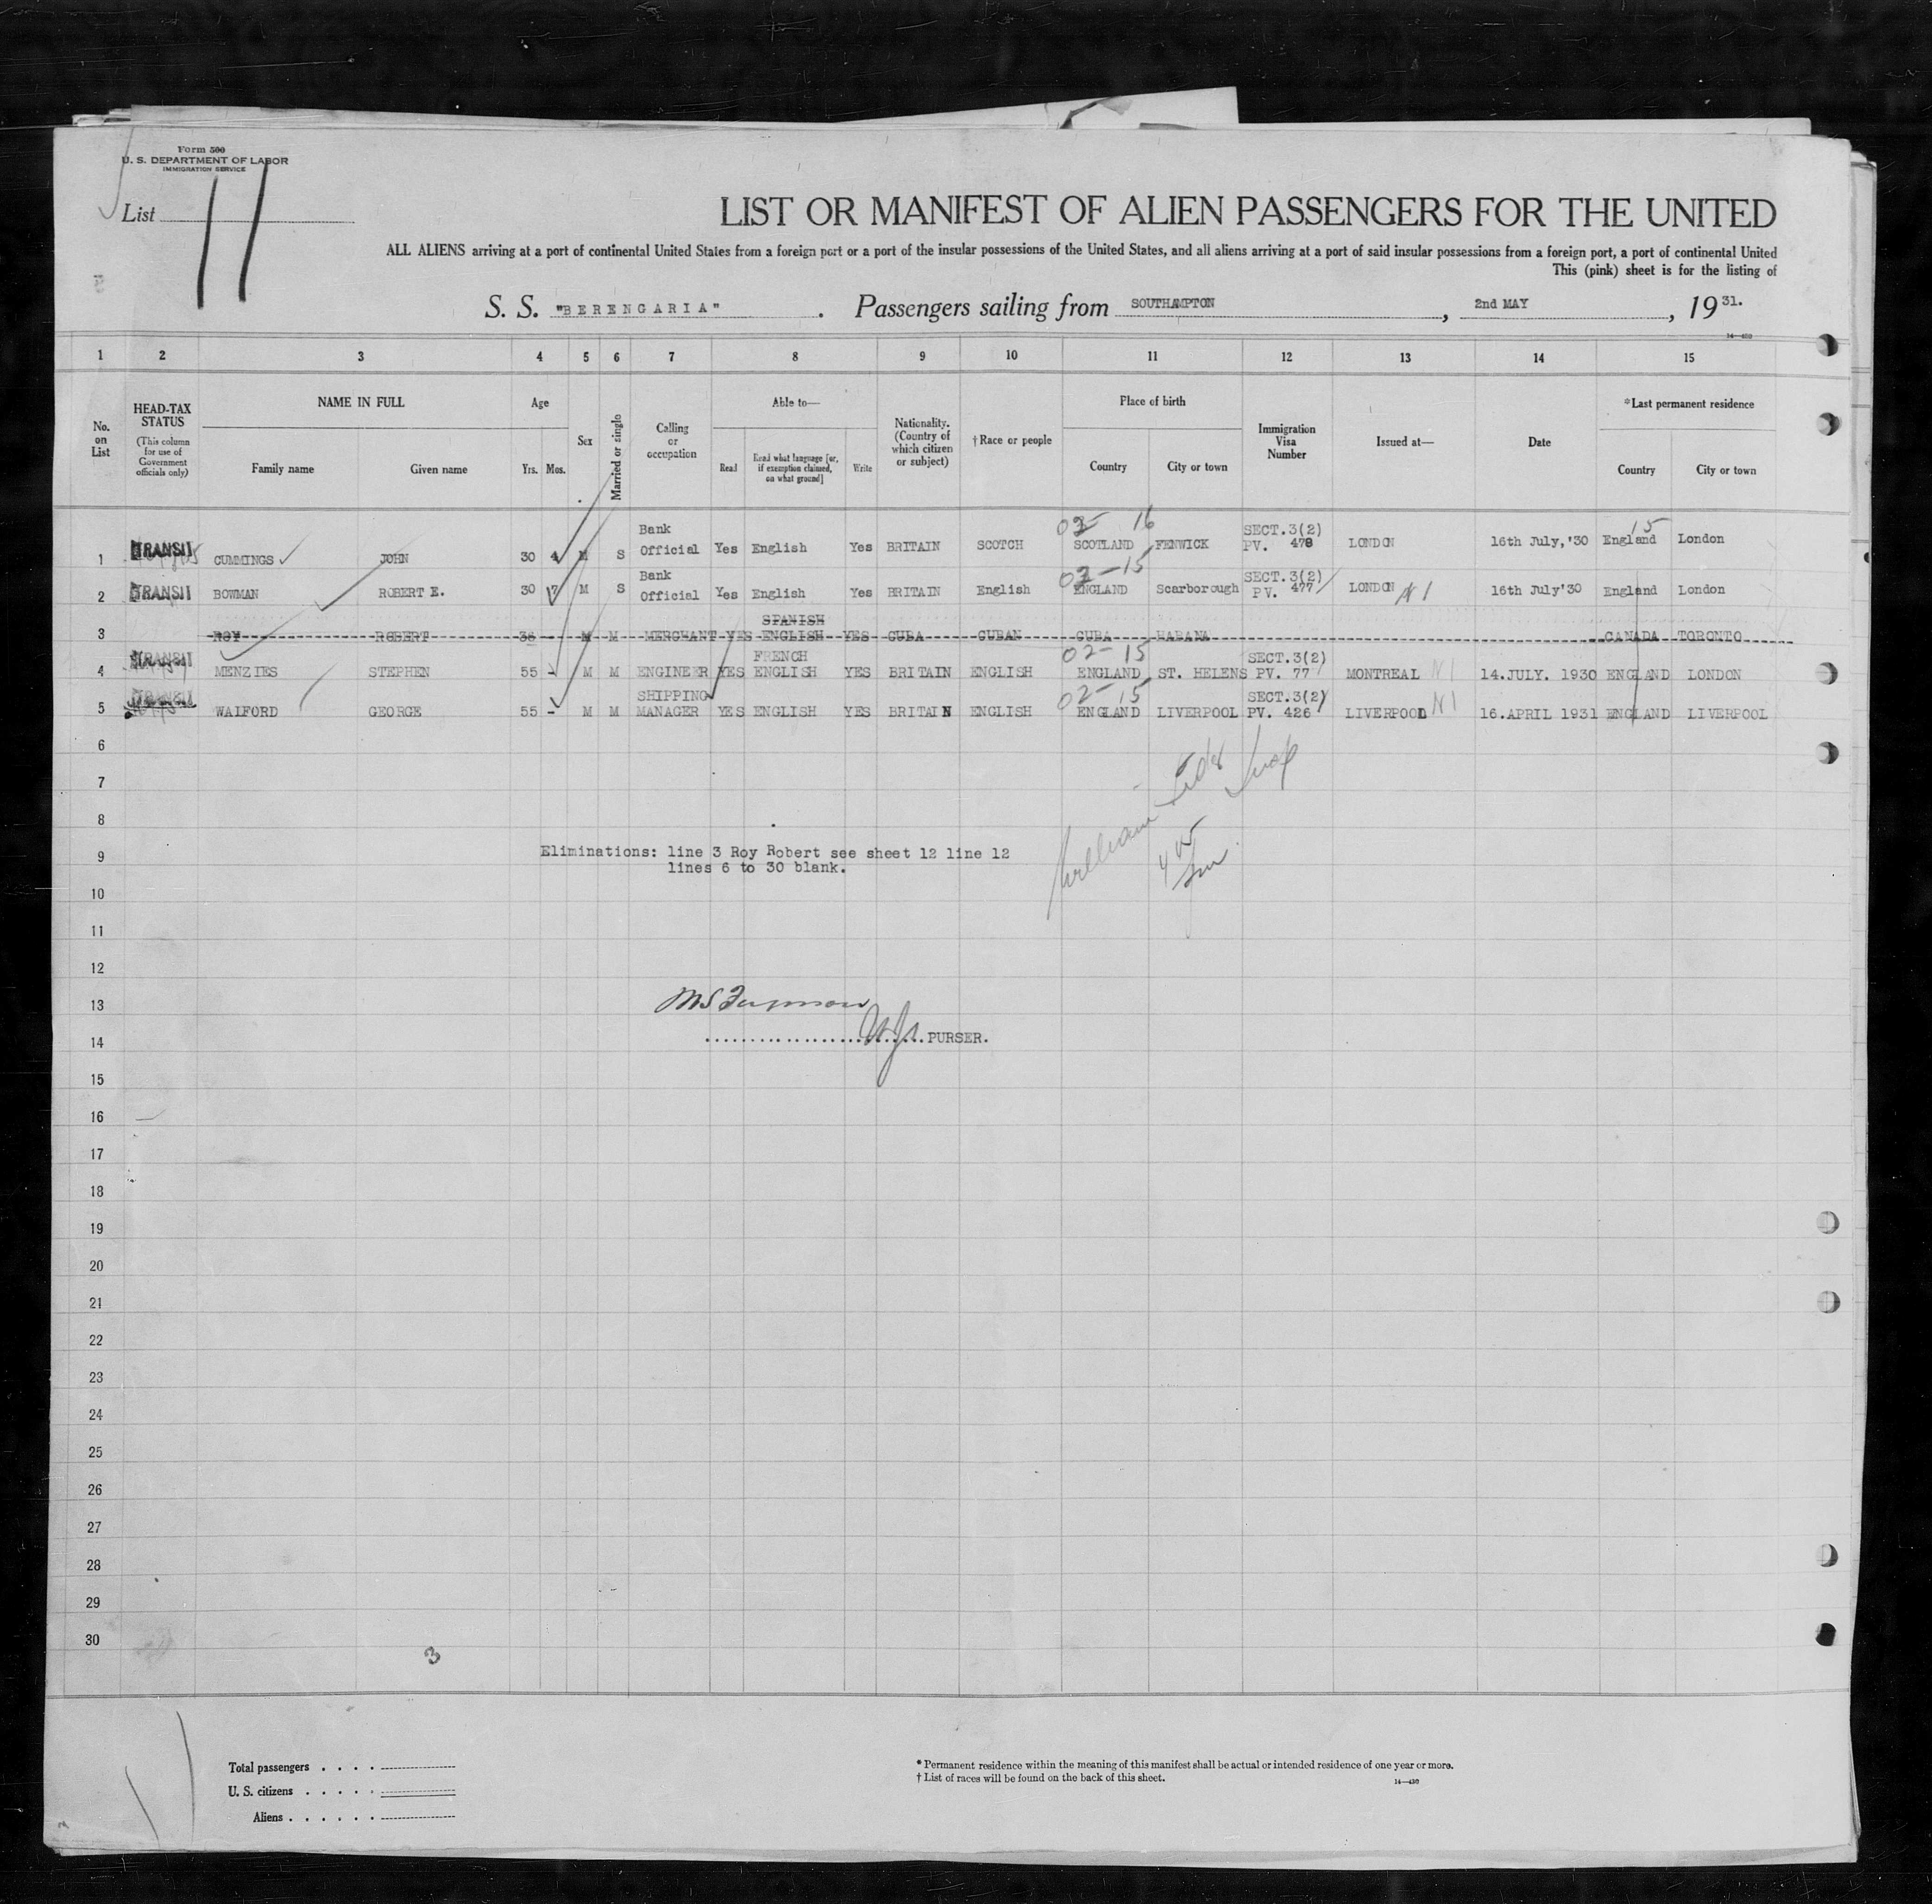 Form 500
U. S. DEPARTMENT OF LABOR
IMMIGRATION SERVICE
List 11
LIST OR MANIFEST OF ALIEN PASSENGERS FOR THE UNITED
ALL ALIENS arriving at a port of continental United States from a foreign port or a port of the insular possessions of the United States, and all aliens arriving at a port of said insular possessions from a foreign port, a port of continental United
This (pink) sheet is for the listing of
S. S. "BERENGARIA" . Passengers sailing from SOUTHAMPTON, 2nd MAY, 19 31.
1 2 3 4 5 6 7 8 9 10 11 12 13 14 15
No. on List HEAD-TAX STATUS (This column for use of Government officials only) NAME IN FULL Family name Given name Age Yrs. Mos. Sex Married or single Calling or occupation Able to— Read Read what language [or, if exemption claimed, on what ground] Write Nationality. (Country of which citizen or subject) †Race or people Place of birth Country City or town Immigration Visa Number Issued at— Date *Last permanent residence Country City or town
02- 16 15
1 TRANSIT CUMMINGS JOHN 30 4 M S Bank Official Yes English Yes BRITAIN SCOTCH SCOTLAND FENWICK SECT.3(2) PV. 478 LONDON 16th July,'30 England London
02-15
2 TRANSIT BOWMAN ROBERT E. 30 7 M S Bank Official Yes English Yes BRITAIN English ENGLAND Scarborough SECT.3(2) PV. 477 LONDON N1 16th July'30 England London
3 ROY ROBERT 36 M M MERCHANT YES SPANISH ENGLISH YES CUBA CUBAN CUBA HABANA CANADA TORONTO
02-15
4 TRANSIT MENZIES STEPHEN 55 - M M ENGINEER YES FRENCH ENGLISH YES BRITAIN ENGLISH ENGLAND ST. HELENS SECT.3(2) PV. 77 MONTREAL N1 14.JULY. 1930 ENGLAND LONDON
02-15
5 TRANSIT WALFORD GEORGE 55 - M M SHIPPING MANAGER YES ENGLISH YES BRITAIN ENGLISH ENGLAND LIVERPOOL SECT.3(2) PV. 426 LIVERPOOL N1 16.APRIL 1931 ENGLAND LIVERPOOL
6
7
8
9 Eliminations: line 3 Roy Robert see sheet 12 line 12
lines 6 to 30 blank.
William
10
11
12
13
14 PURSER.
15
16
17
18
19
20
21
22
23
24
25
26
27
28
29
30
3
Total passengers
U. S. citizens
Aliens
* Permanent residence within the meaning of this manifest shall be actual or intended residence of one year or more.
† List of races will be found on the back of this sheet.
14—430